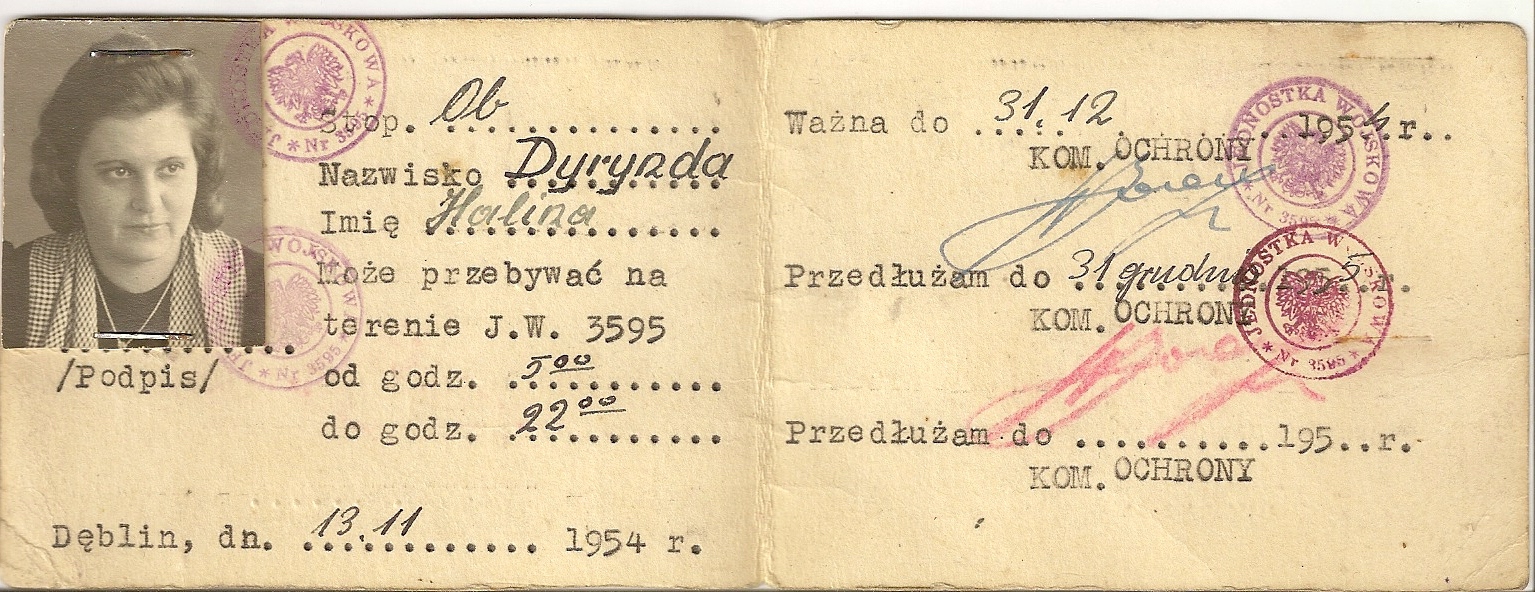 Stop. Ob
Nazwisko Dyryzda
Imię Halina
Może przebywać na
terenie J.W. 3595
/Podpis/
od godz. 5⁰⁰
do godz. 22⁰⁰
Dęblin, dn. 13.11 1954 r.
JEDNOSTKA WOJSKOWA * Nr 3595 *
JEDNOSTKA WOJSKOWA * Nr 3595 *
Ważna do 31.12 1954 r..
KOM. OCHRONY
JEDNOSTKA WOJSKOWA * Nr 3595 *
Przedłużam do 31 grudnia 1955 r.
KOM. OCHRONY
JEDNOSTKA WOJSKOWA * Nr 3595 *
Przedłużam do ..........195..r.
KOM. OCHRONY